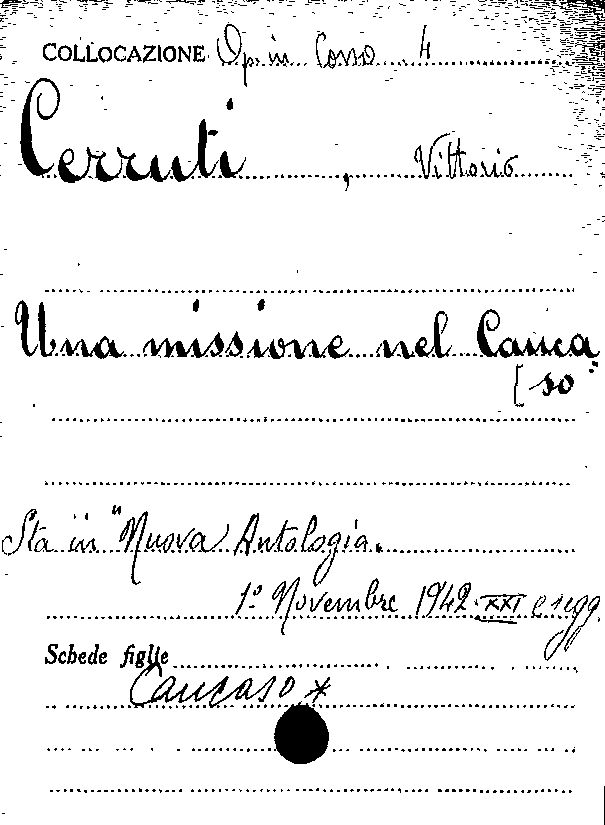 COLLOCAZIONE Op. in Corso 4
Cerruti, Vittorio
Una missione nel Cauca
[so
Sta in "Nuova Antologia.
1º Novembre 1942-XXI e segg.
Schede figlie
Caucaso *